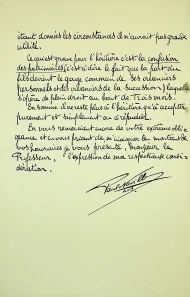 étant donnés les circonstances n'aurait pas grande
utilité.
Ce qui est grave pour l'héritière c'est la confusion
des patrimoines c'est à dire le fait que la part du
fils devient le gage commun de ses créanciers
personnels et des créanciers de la succession) laquelle
s'opère de plein droit au bout de trois mois.
En somme il ne reste plus à l'héritière qu'à accepter
purement et simplement ou à répudier.
En vous remerciant encore de votre extrême obli-
geance et en vous priant de m'indiquer le montant de
vos honoraires je vous présente, Monsieur le
Professeur, l'expression de ma respectueuse consi-
dération.